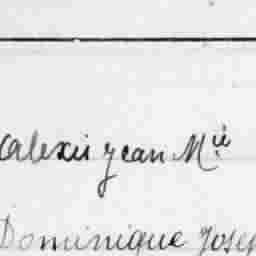 Alexis Jean Mie
Dominique Josep